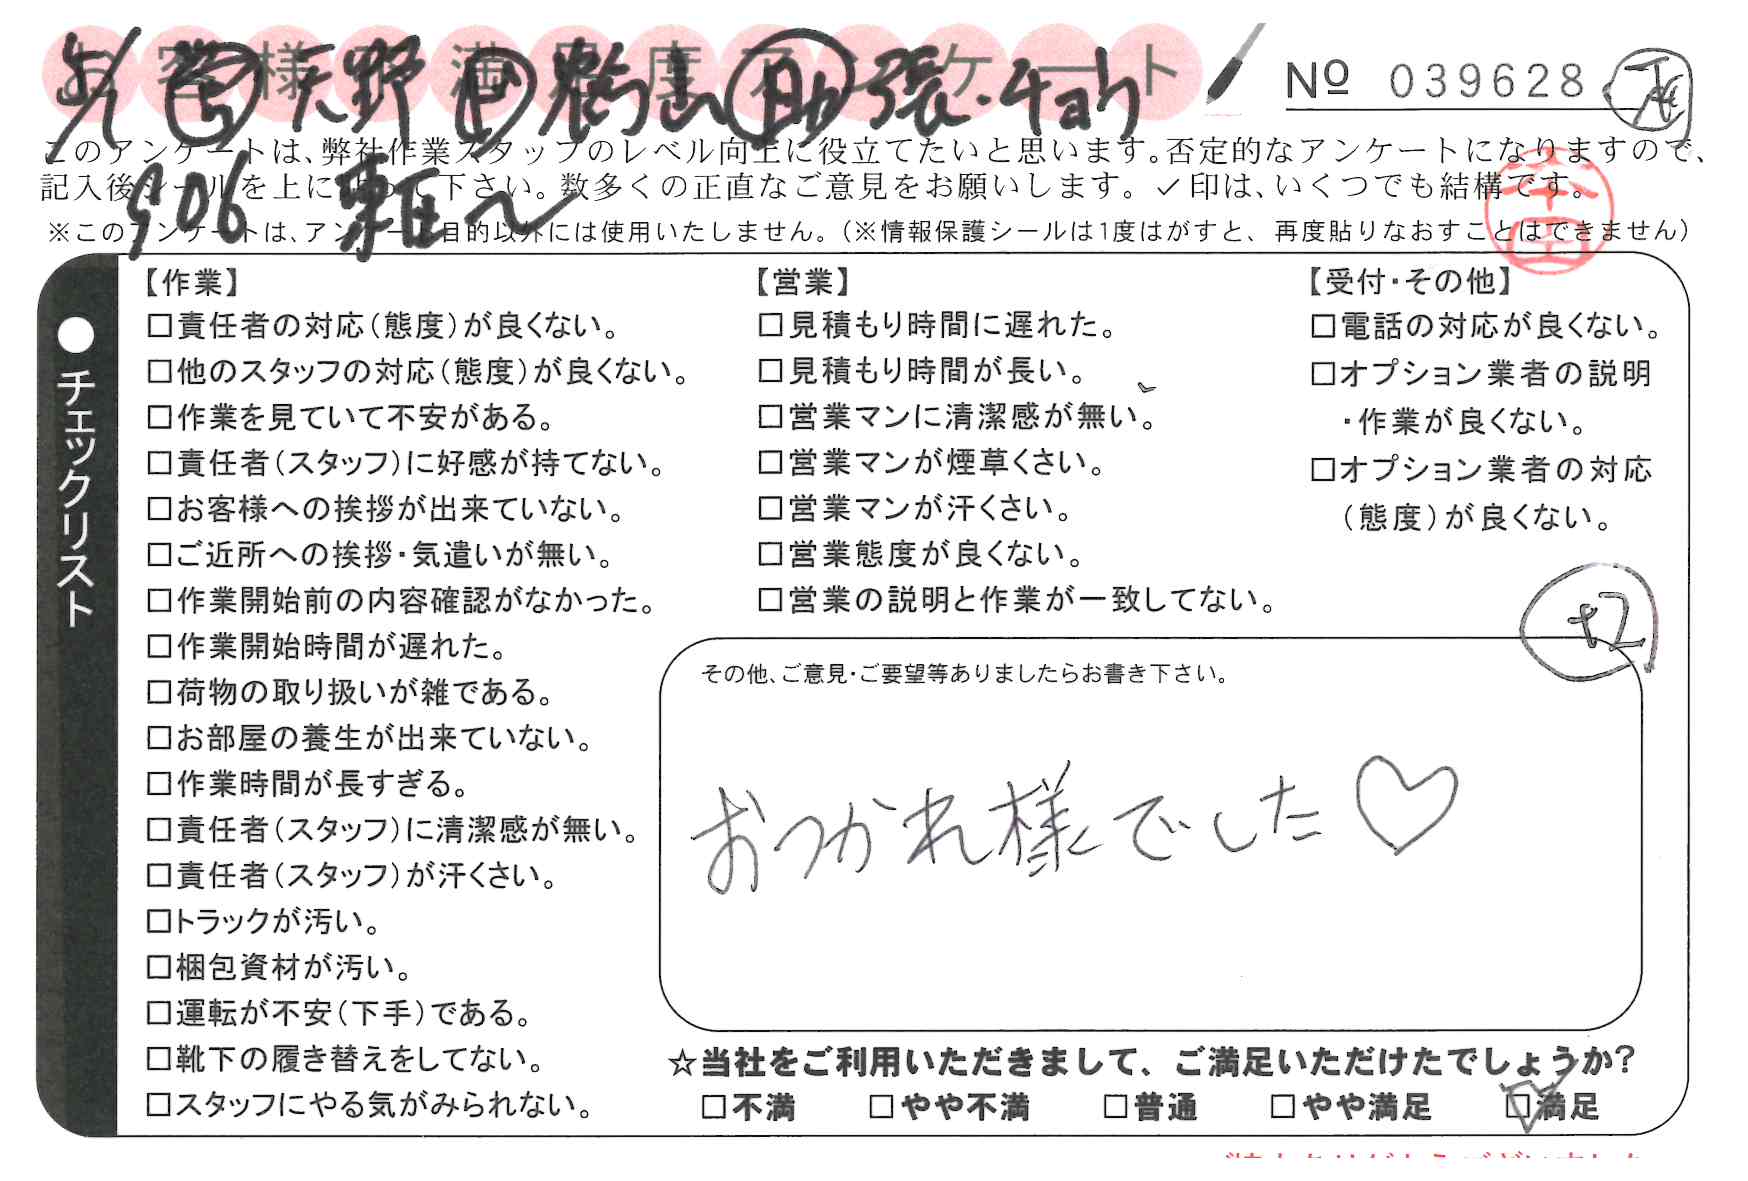 お客様満足度アンケート
5/1 矢野 助 張・
Nº 039628
このアンケートは、弊社作業スタッフのレベル向上に役立てたいと思います。否定的なアンケートになりますので、
記入後シールを上に貼って下さい。数多くの正直なご意見をお願いします。✓印は、いくつでも結構です。
906
※このアンケートは、アンケート目的以外には使用いたしません。(※情報保護シールは1度はがすと、再度貼りなおすことはできません)
●チェックリスト
【作業】
□責任者の対応(態度)が良くない。
□他のスタッフの対応(態度)が良くない。
□作業を見ていて不安がある。
□責任者(スタッフ)に好感が持てない。
□お客様への挨拶が出来ていない。
□ご近所への挨拶・気遣いが無い。
□作業開始前の内容確認がなかった。
□作業開始時間が遅れた。
□荷物の取り扱いが雑である。
□お部屋の養生が出来ていない。
□作業時間が長すぎる。
□責任者(スタッフ)に清潔感が無い。
□責任者(スタッフ)が汗くさい。
□トラックが汚い。
□梱包資材が汚い。
□運転が不安(下手)である。
□靴下の履き替えをしてない。
□スタッフにやる気がみられない。
【営業】
□見積もり時間に遅れた。
□見積もり時間が長い。
□営業マンに清潔感が無い。
□営業マンが煙草くさい。
□営業マンが汗くさい。
□営業態度が良くない。
□営業の説明と作業が一致してない。
【受付・その他】
□電話の対応が良くない。
□オプション業者の説明
・作業が良くない。
□オプション業者の対応
(態度)が良くない。
+2
その他、ご意見・ご要望等ありましたらお書き下さい。
おつかれ様でした♡
☆当社をご利用いただきまして、ご満足いただけたでしょうか?
□不満 □やや不満 □普通 □やや満足 □満足